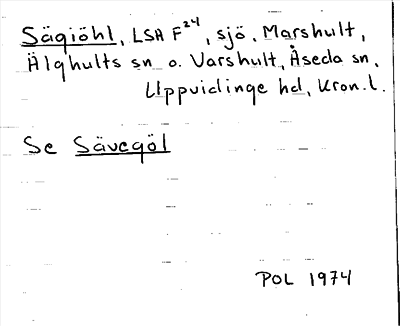 Sägiöhl, LSA F²⁴, sjö, Marshult,
Älghults sn o. Varshult, Åseda sn,
Uppvidinge hd, Kron.l.
Se Sävegöl
POL 1974